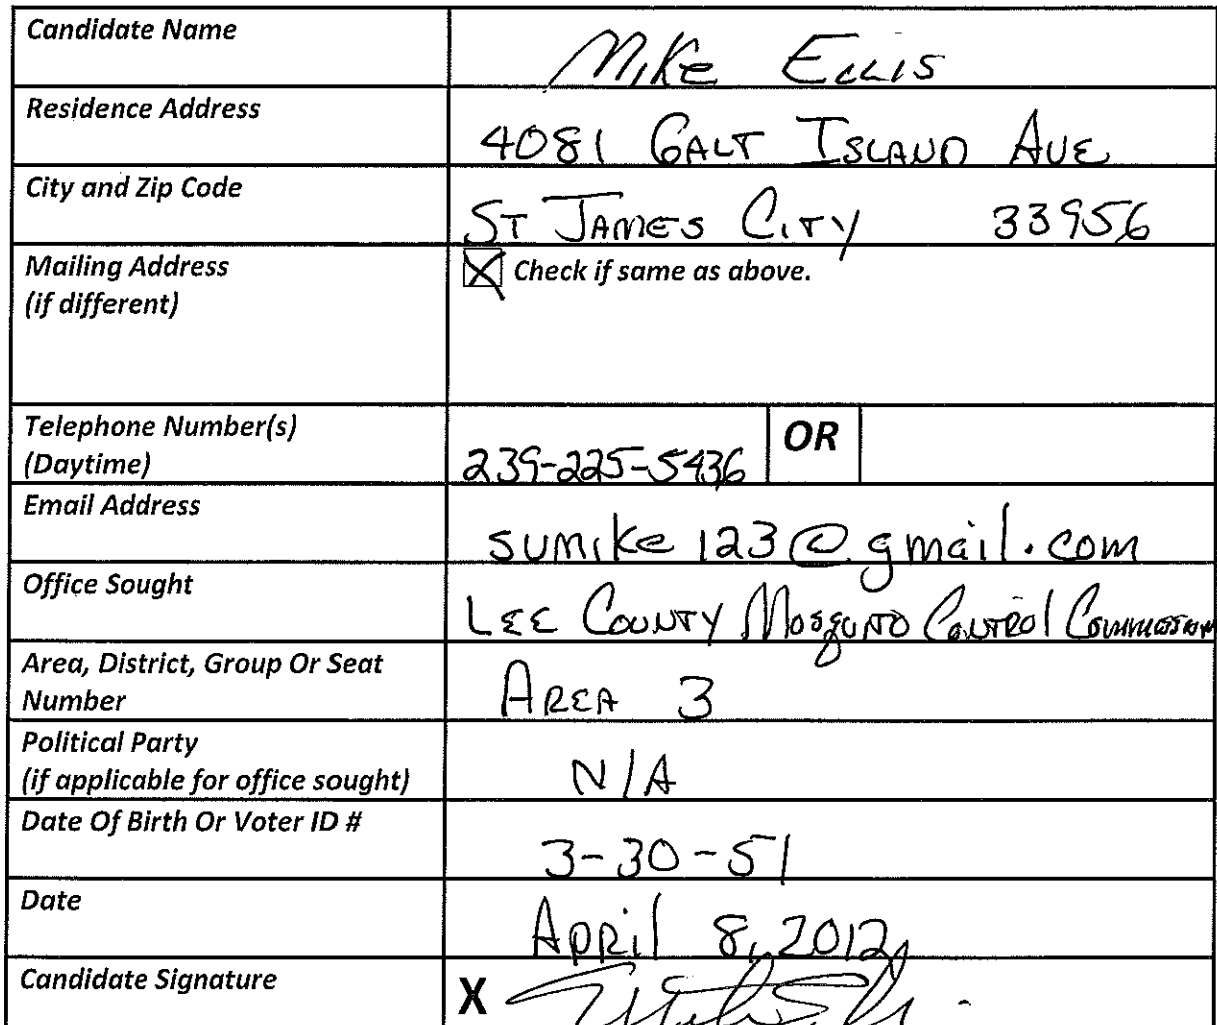 Candidate Name
Mike Ellis
Residence Address
4081 Galt Island Ave
City and Zip Code
St James City 33956
Mailing Address
(if different)
Check if same as above.
Telephone Number(s)
(Daytime)
239-225-5436
OR
Email Address
sumike123@gmail.com
Office Sought
Lee County Mosquito Control Commission
Area, District, Group Or Seat
Number
Area 3
Political Party
(if applicable for office sought)
N/A
Date Of Birth Or Voter ID #
3-30-51
Date
April 8, 2012
Candidate Signature
X